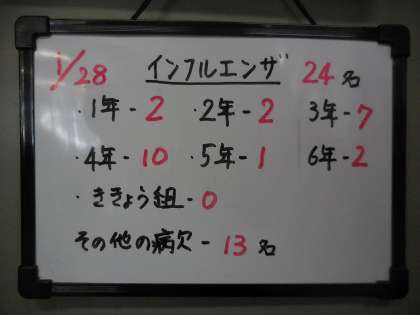 1/28 インフルエンザ 24名
・1年-2 ・2年-2 3年-7
・4年-10 ・5年-1 6年-2
・ききょう組-0
その他の病欠-13名